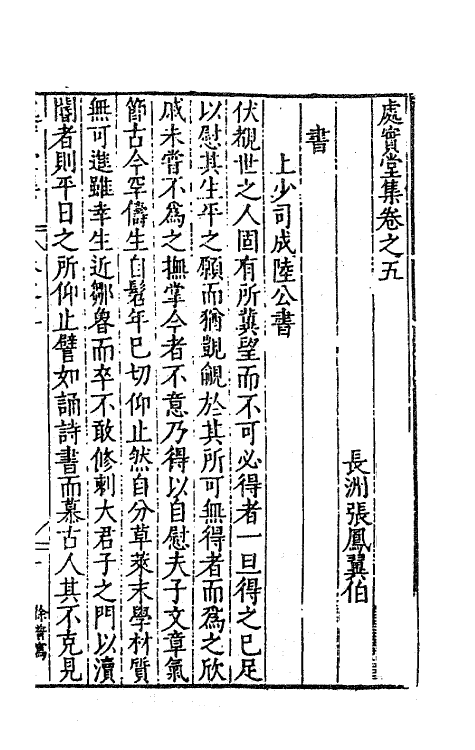 處實堂集卷之五
長洲張鳳翼伯
書
上少司成陸公書
伏覩世之人固有所冀望而不可必得者一旦得之已足
以慰其生平之願而猶覬覦於其所可無得者而爲之欣
戚未嘗不爲之撫掌今者不意乃得以自慰夫子文章氣
節古今罕儔生自髫年已切仰止然自分草萊末學材質
無可進雖幸生近鄒魯而卒不敢修刺大君子之門以瀆
閽者則平日之所仰止譬如誦詩書而慕古人其不克見